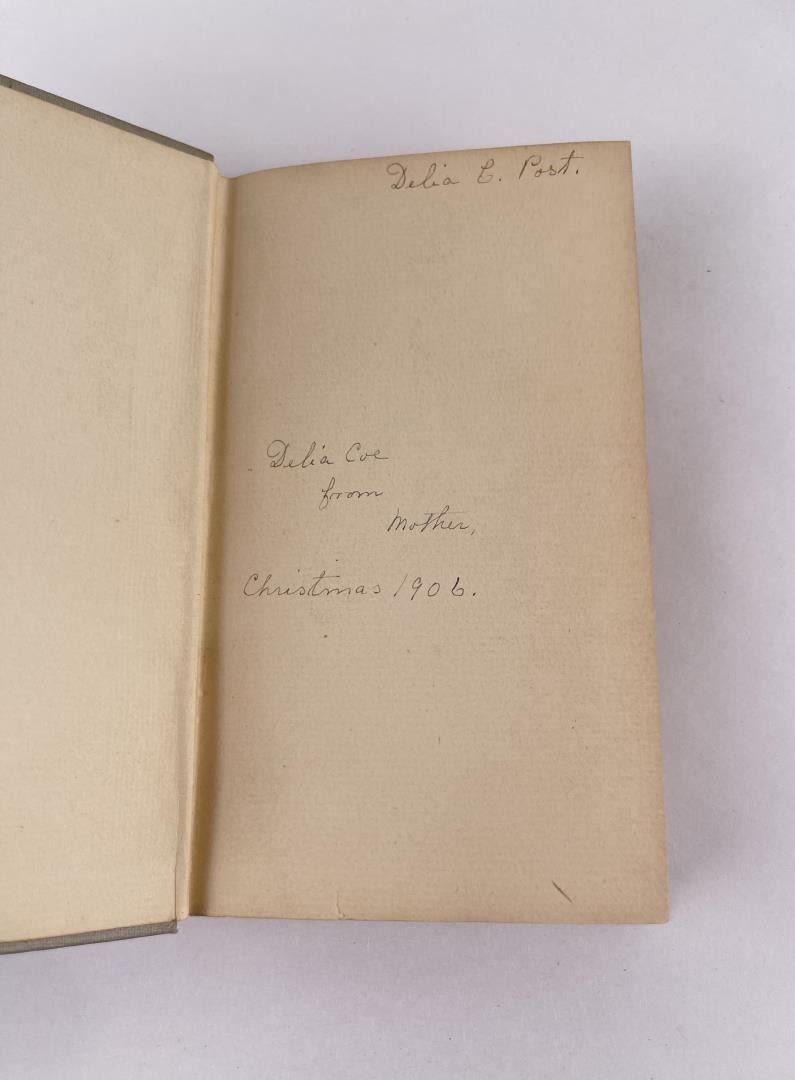 Delia C. Post.
Delia Coe
from
Mother,
Christmas 1906.